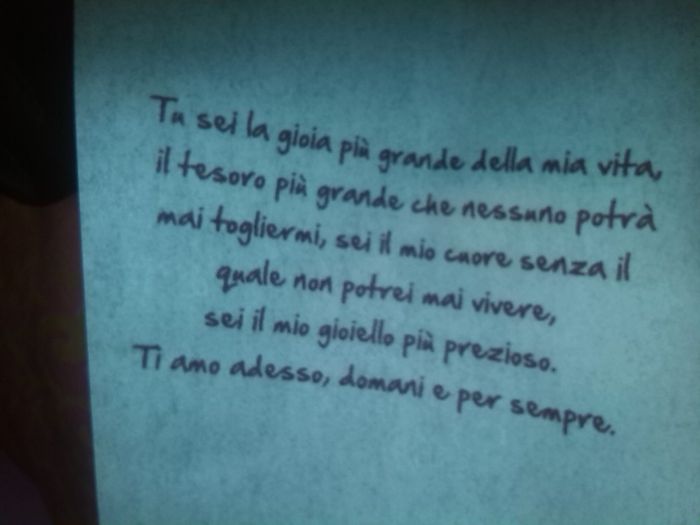 Tu sei la gioia più grande della mia vita,
il tesoro più grande che nessuno potrà
mai togliermi, sei il mio cuore senza il
quale non potrei mai vivere,
sei il mio gioiello più prezioso.
Ti amo adesso, domani e per sempre.